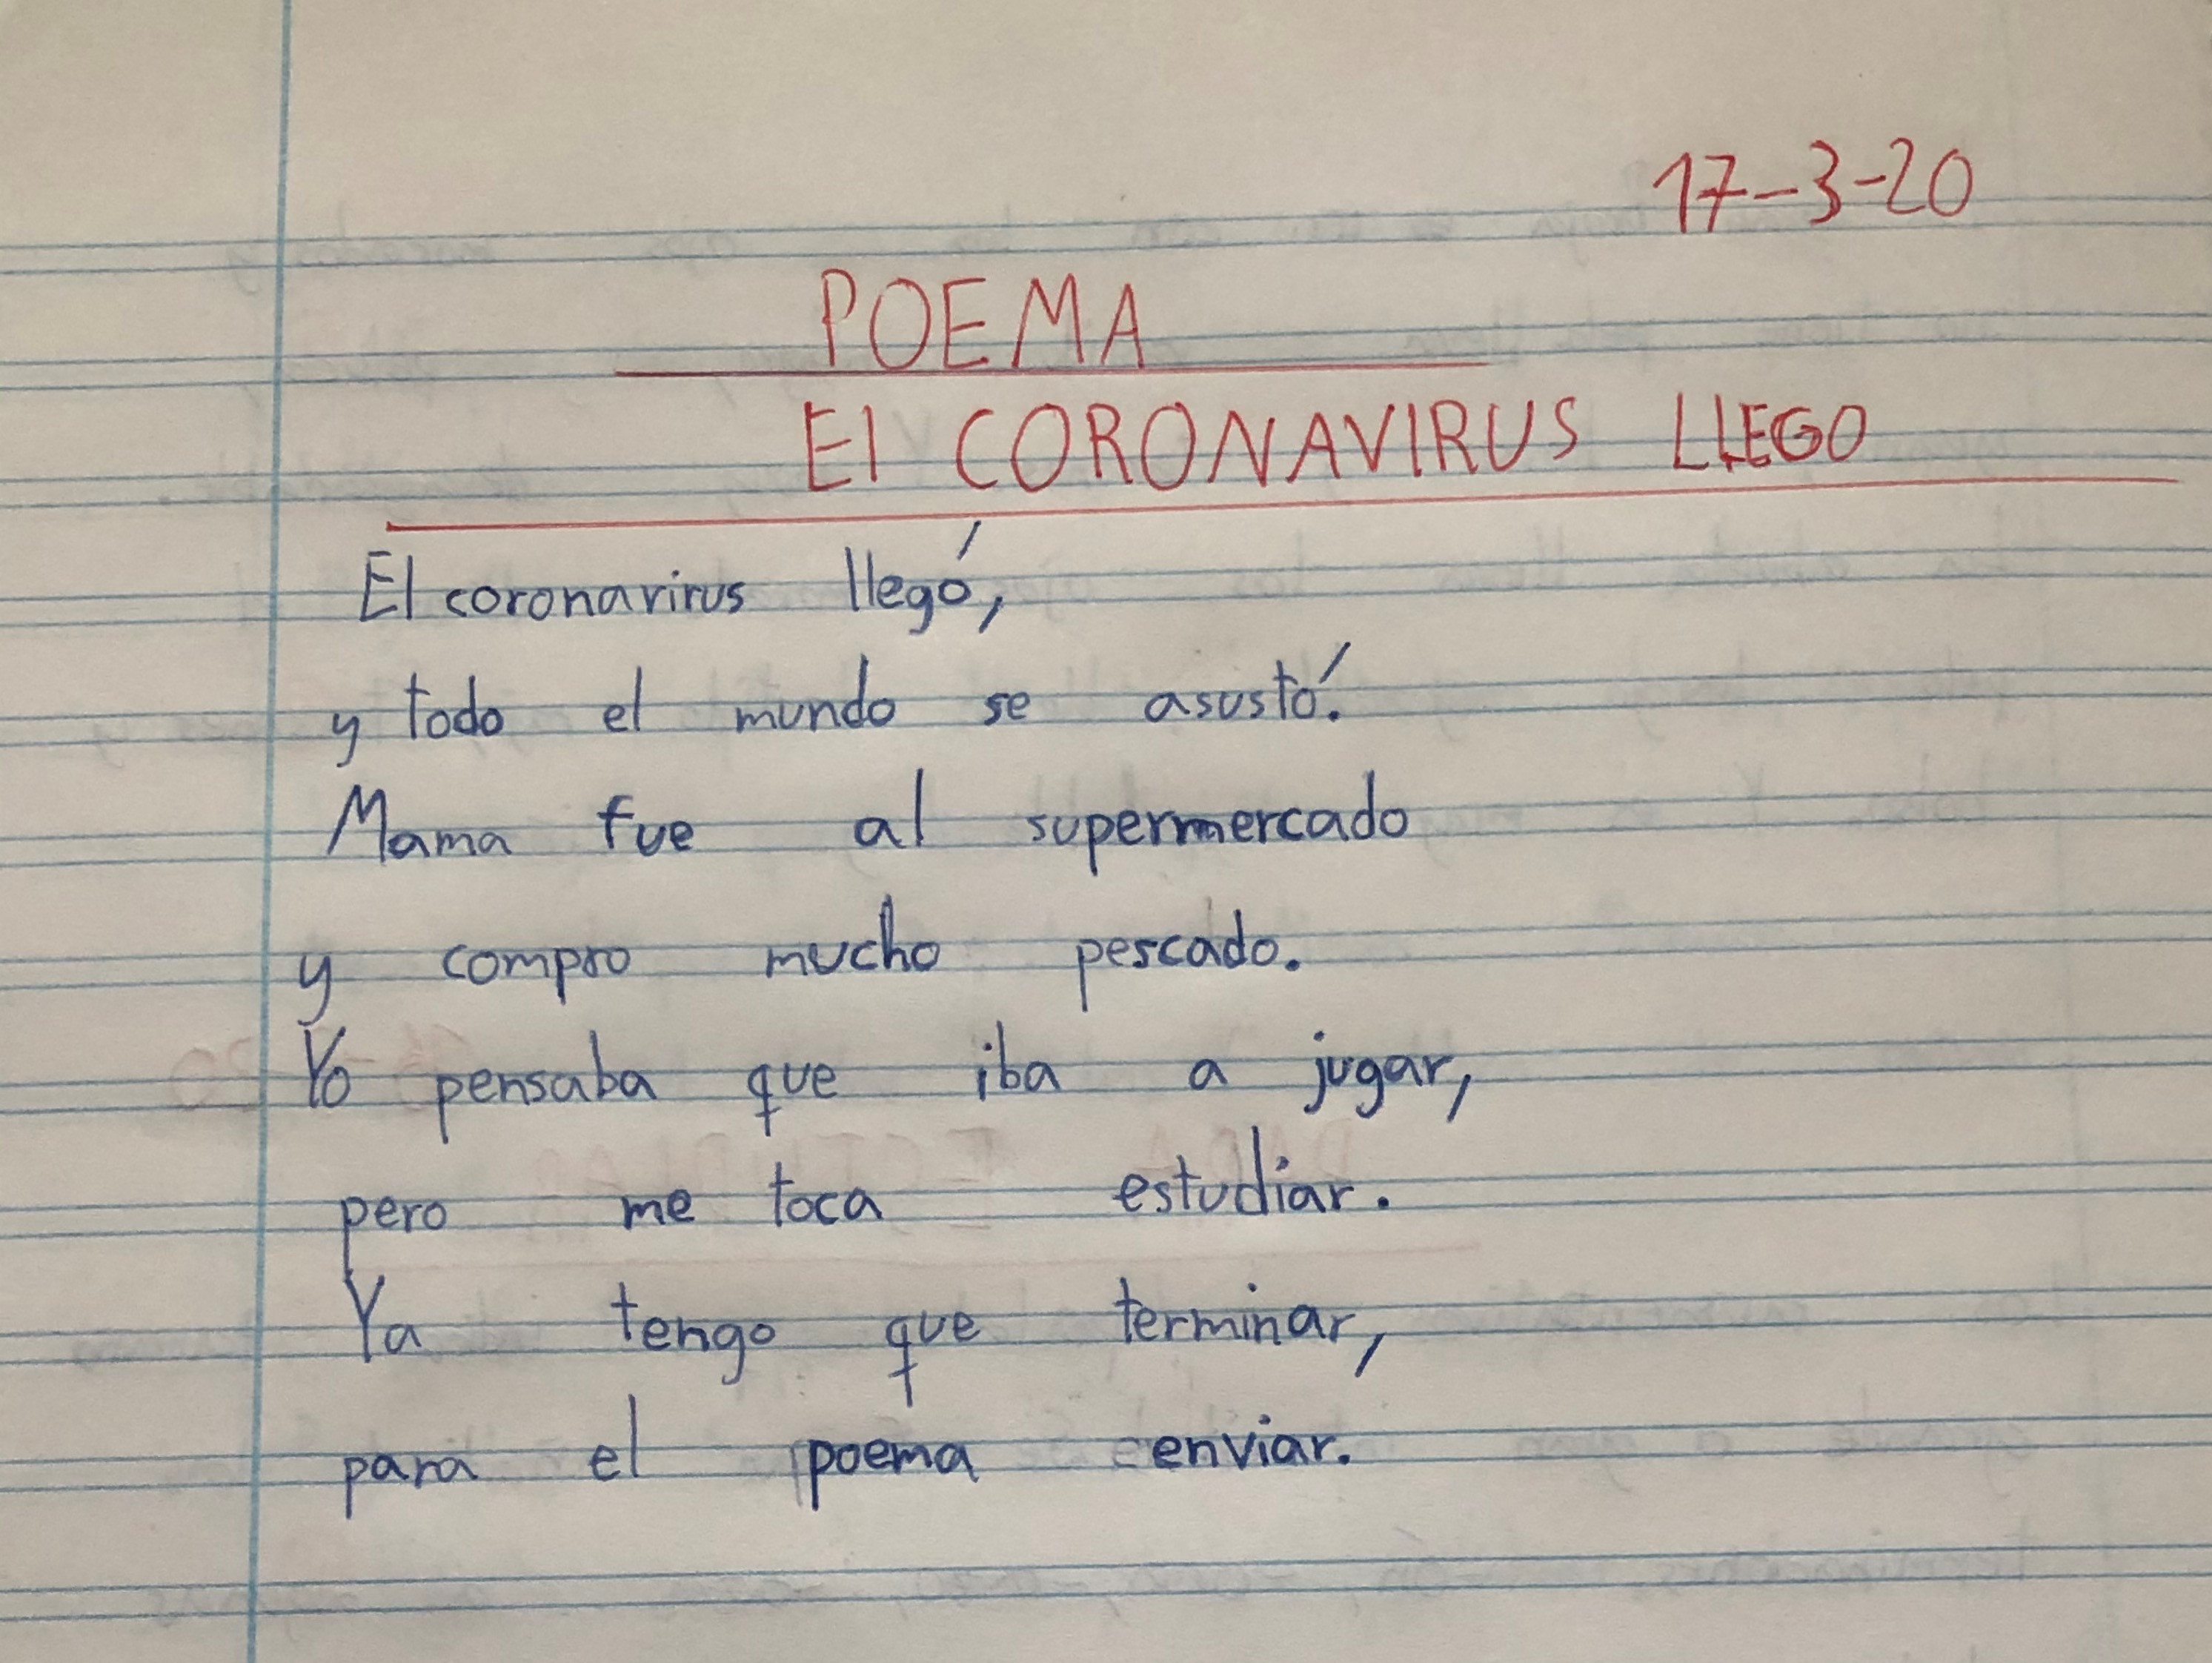 17-3-20
POEMA
El CORONAVIRUS LLEGO
El coronavirus llegó,
y todo el mundo se asustó.
Mama fue al supermercado
y compro mucho pescado.
Yo pensaba que iba a jugar,
pero me toca estudiar.
Ya tengo que terminar,
para el poema enviar.